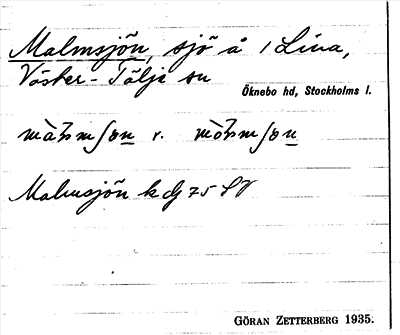 Malmsjön, sjö å 1 Lina,
Väster-Tälje sn
Öknebo hd, Stockholms l.
r.
Malmsjön kdj 75 SV
GÖRAN ZETTERBERG 1935.